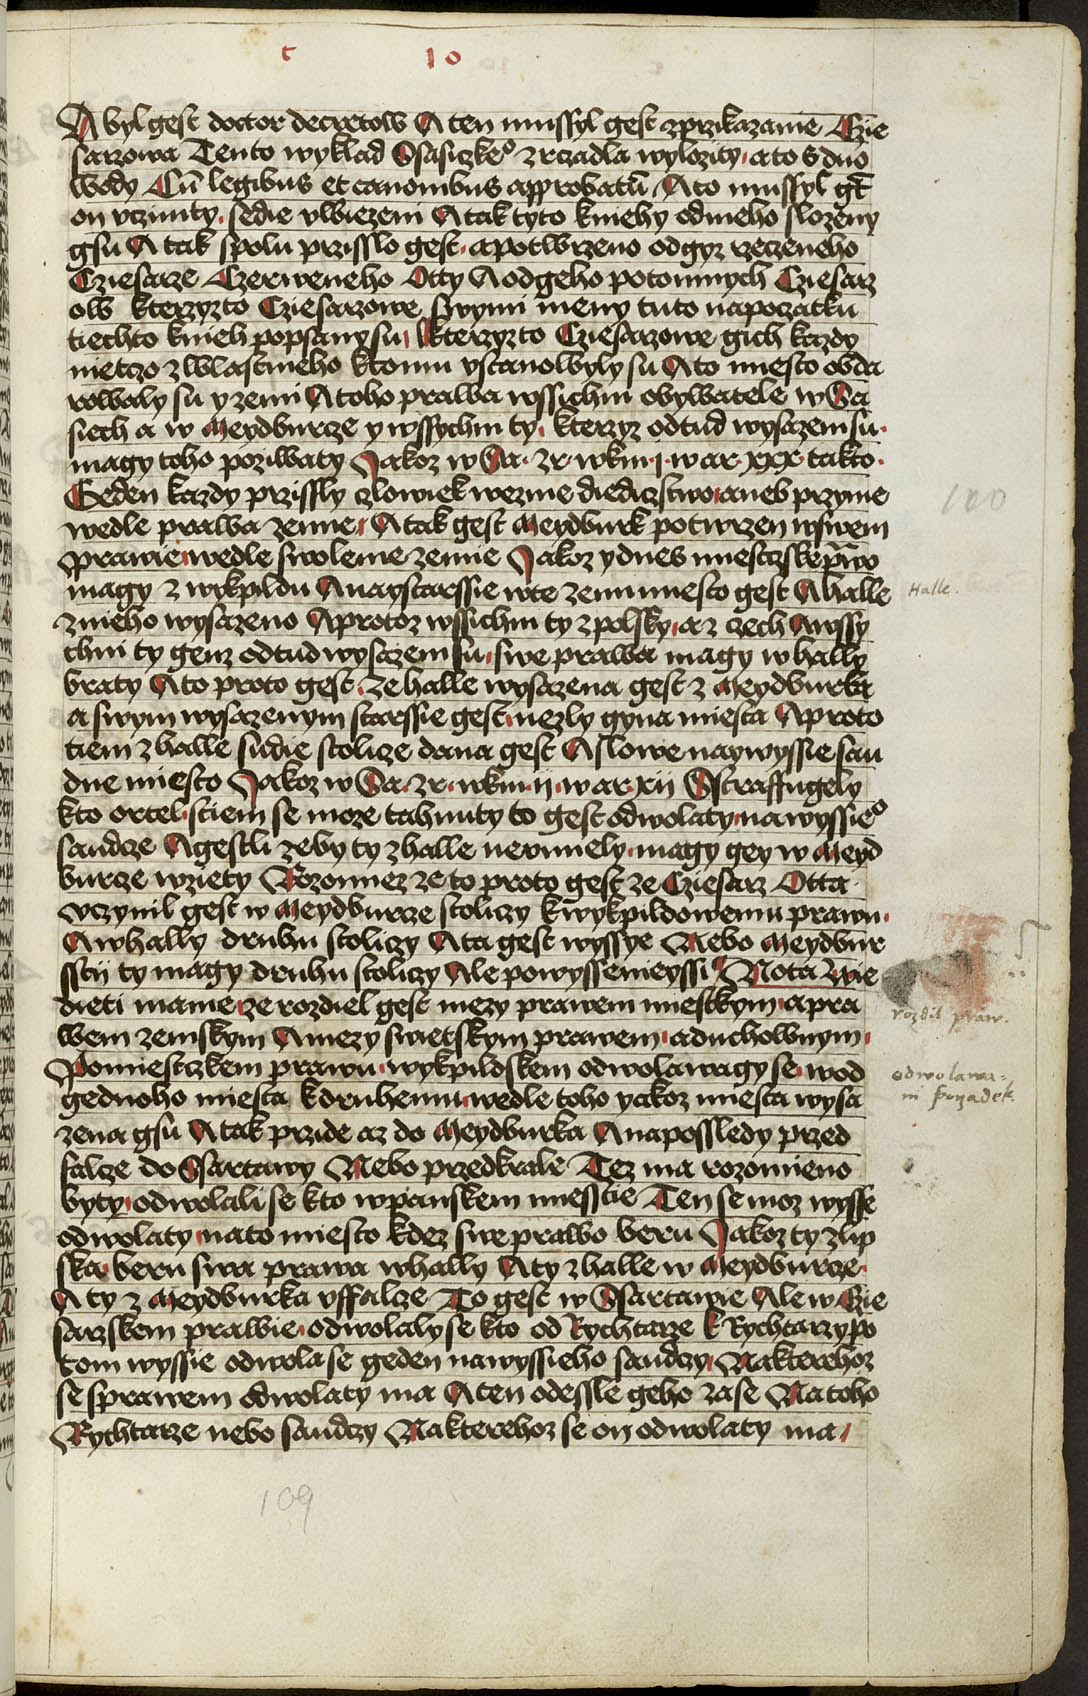 c 10
A byl gest doctor decretow A ten mussyl gest zprzikazanie Czie
sarzowa Tento wyklad Ssasiczkeº zrczadla wylozity a to s duo
wody Cū legibus et canonibus approbatū A to mussyl gt
on vczinity sedie vwiezeni A tak tyto kniehy odnieho slozeny
gsu A tak spolu przisslo gest apotwrzeno odgyz rzeczeneho
Cziesarze Czerweneho Otty A odgeho potomnych Cziesarz
ow kterzyzto Cziesarzowe swymi meny tuto napoczatku
tiechto knieh popsany su kterzyzto Cziesarzowe gich kazdy
nietczo zwlastnieho ktomu vstanowyly su A to miesto obda
rowaly su y zemi A toho prawa wssichni obywatele w Sa
siech a w Meydburcze y wssychni ty kterzyz odtud wysazeni su
magy toho poziwaty Jakoz w Sa zr wkni j w ar xxx takto
Geden kazdy przissly czlowiek wezme diedicztwo aneb przyme
wedle prawa zemie A tak gest Meydburk potwrzen wswem
prawie wedle swolenie zemie Jakoz ydnes miestczskep̄wo
magy z wykpildu A naystarssie wte zemi miesto gest A halle
znieho wysazeno A protoz wssichni ty zpolsky a z czech A wssy
chni ty genz odtud wysazeni su swe prawa magy w hally
braty A to proto gest ze halle wysazena gest z Meydburka
a swym wysazenym starssie gest nezly gyna miesta A proto
tiem zhalle sudie stolicze dana gest A slowe naywyssie sau
dne miesto Jakoz w Sa zr wkni ij w ar xij Sstraffugely
kto ortel stiem se moze tahnuty to gest odwolaty nawyssieº
saudcze A gestli zeby ty zhalle nevmiely magy gey w Meyd
burcze wziety Rozomiez ze to proto gest ze Cziesarz Otta
vczynil gest w Meydburcze stoliczy kwykpildowemu prawu
A whally druhu stoliczy A ta gest wyssye Nebo Meydbur
sstij ty magy druhu stoliczy Ale powyssenieyssi Nota Wie
dieti mame ze rozdiel gest mezy prawem miestkym a pra
wem zemskym A mezy swietskym prawem a duchownym
Pomiestczkem prawu wykpildskem odwolawagy se wod
gednoho miesta kdruhemu wedle toho yakoz miesta wysa
zena gsu A tak przide az do Meydburka A naposledy przed
falcze do Ssartawy Nebo przedkrale Tez ma rozomieno
byty odwolali se kto wpanskem miesstie Ten se moz wysse
odwolaty nato miesto kdez swe prawo beru Jakoz ty zlip
ska beru swa prawa whally A ty zhalle w Meydburcze
A ty z Meydburka vffalcze To gest w Ssartawie Ale w Czie
sarzskem prawie odwolalyse kto od Rychtarze k Rychtarzy po
tom wyssie odwola se geden nawyssieho saudczy Nakterehoz
se sprawem odwolaty ma A ten odessle geho zase Na toho
Rychtarze nebo saudczy Nakterehoz se on odwolaty ma
100
Halle.
rozdil praw.
odwolawa=
ni porzadek.
109